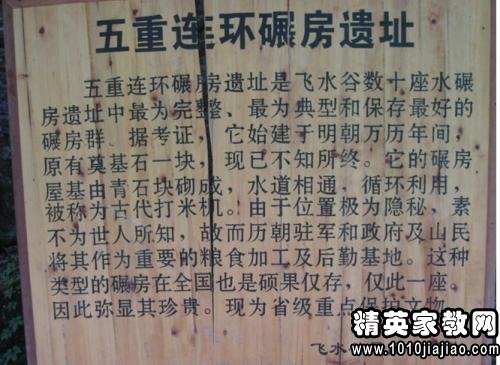 五重连环碾房遗址
五重连环碾房遗址是飞水谷数十座水碾
房遗址中最为完整、最为典型和保存最好的
碾房群。据考证，它始建于明朝万历年间，
原有奠基石一块，现已不知所终。它的碾房
屋基由青石块砌成，水道相通，循环利用，
被称为古代打米机。由于位置极为隐秘，素
不为世人所知，故而历朝驻军和政府及山民
将其作为重要的粮食加工及后勤基地。这种
类型的碾房在全国也是硕果仅存，仅此一座。
因此弥显其珍贵。现为省级重点保护文物
飞水
精英家教网
www.1010jiajiao.com